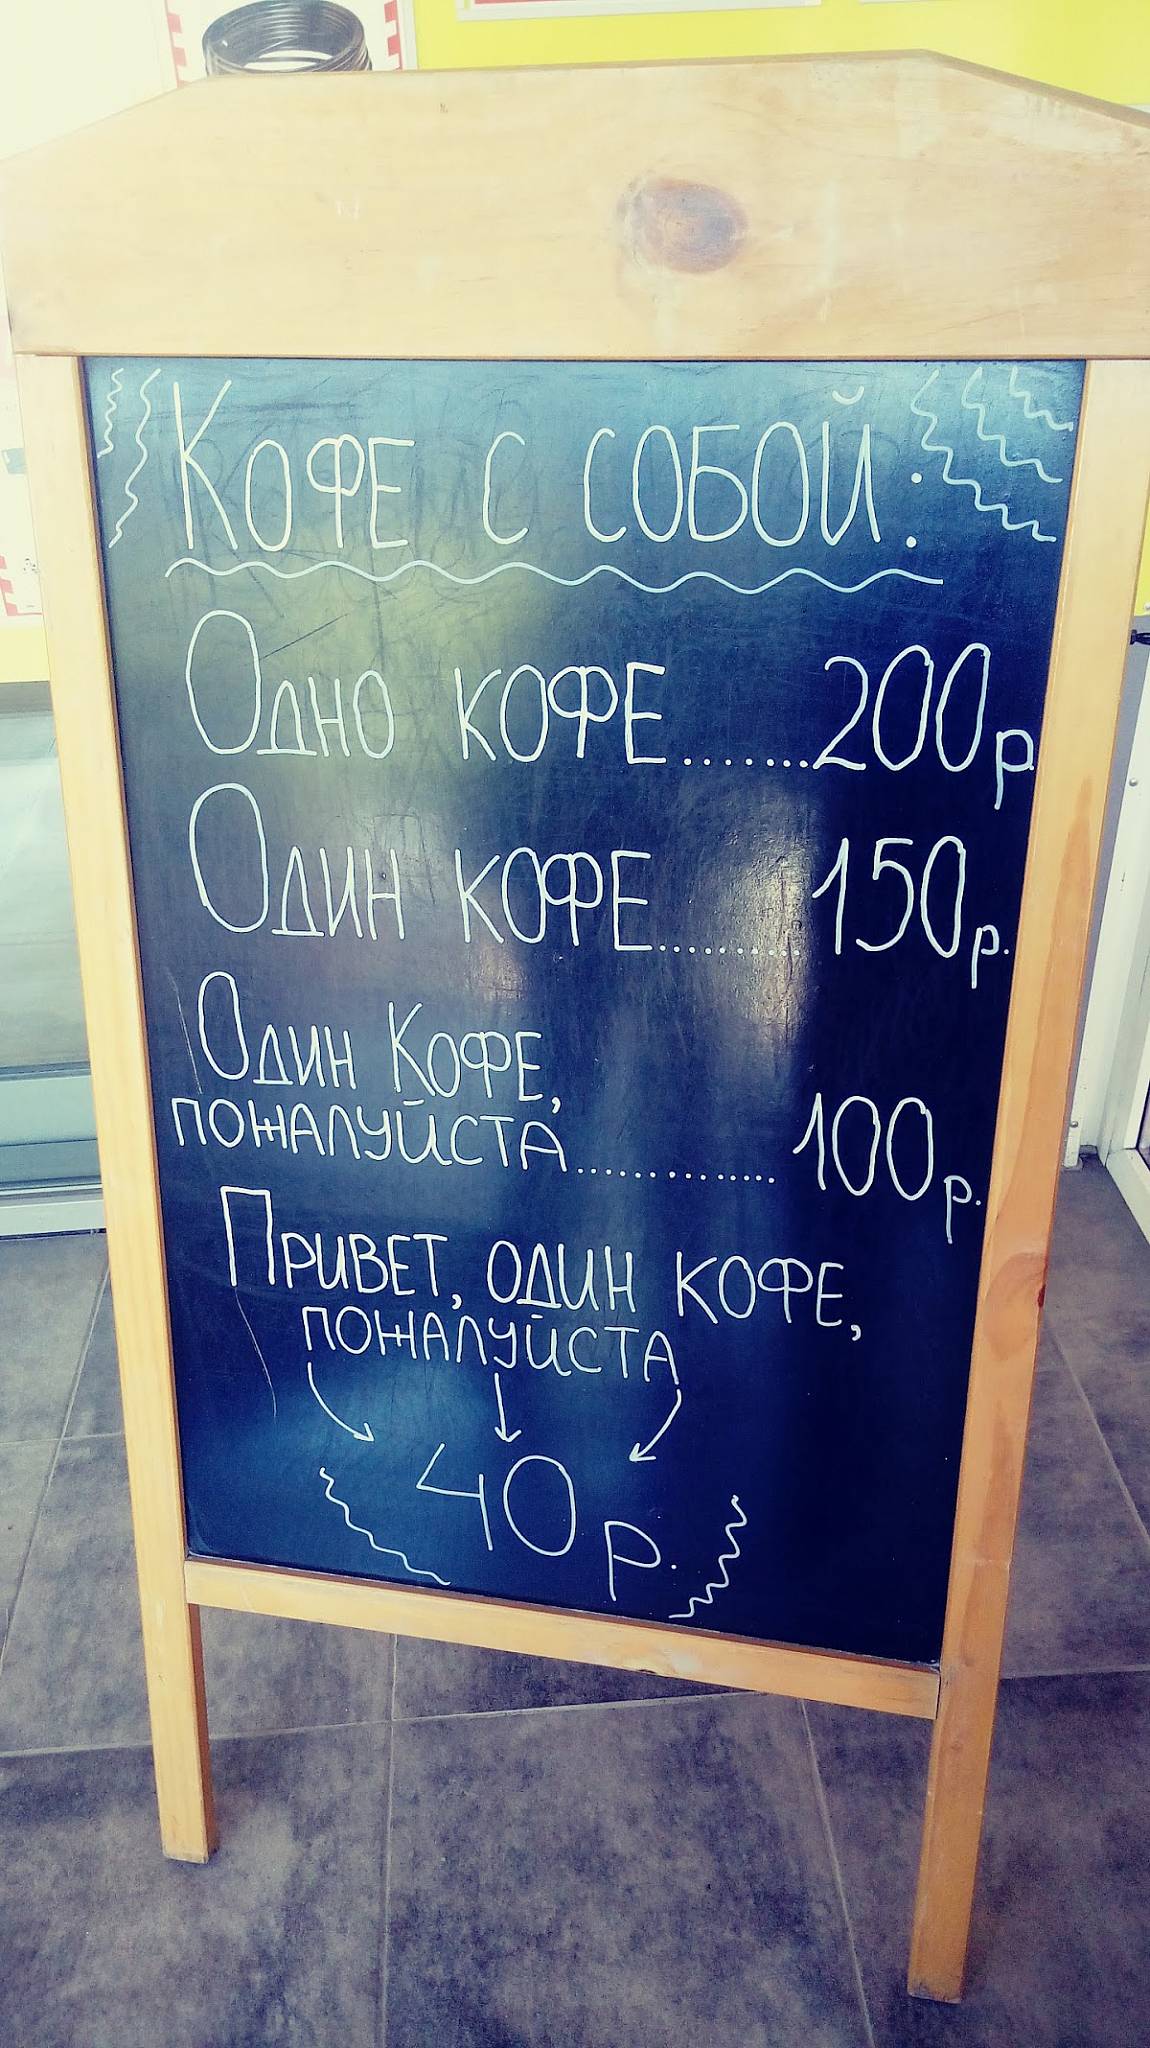 Кофе с собой:
Одно кофе.......200р
Один кофе..........150р.
Один Кофе,
пожалуйста..............100р.
Привет, один кофе,
пожалуйста
40р.